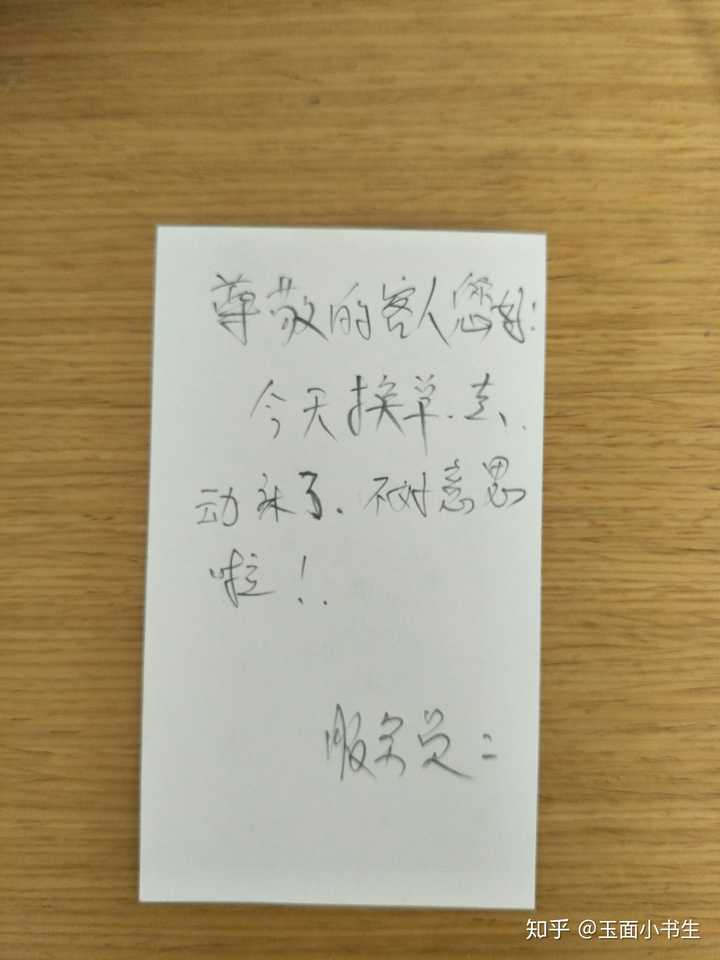 尊敬的客人您好：
今天换单.去、
动来了、不对意思
啦！.
服务员：
知乎 @玉面小书生